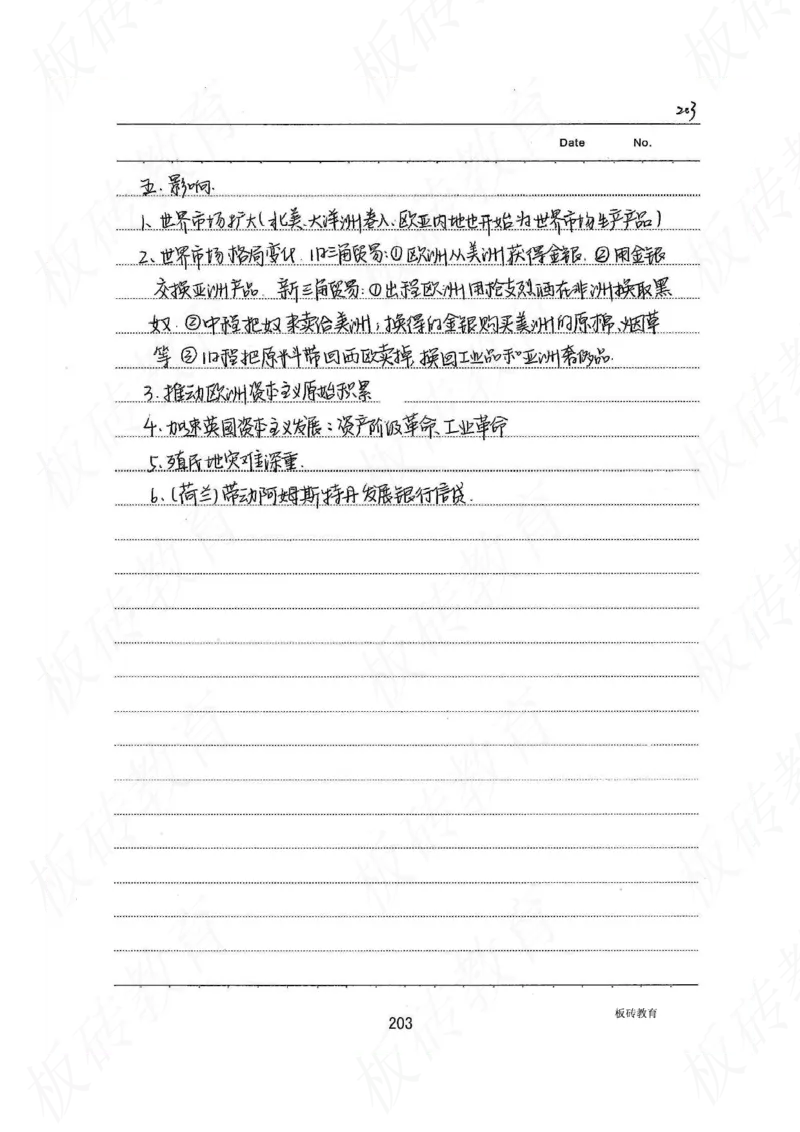 203
Date No.
五. 影响.
1、世界市场扩大(北美、大洋洲卷入、欧亚内地也开始为世界市场生产产品)
2、世界市场格局变化. 旧三角贸易:①欧洲从美洲获得金银. ②用金银
交换亚洲产品. 新三角贸易:①出程欧洲用枪支烈酒在非洲换取黑
奴. ②中程把奴隶卖给美洲,换得的金银购买美洲的原棉、烟草
等 ③归程把原料带回西欧卖掉,换回工业品和亚洲奢侈品.
3. 推动欧洲资本主义原始积累
4. 加速英国资本主义发展:资产阶级革命、工业革命
5. 殖民地灾难深重.
6、(荷兰)带动阿姆斯特丹发展银行信贷.
203
板砖教育